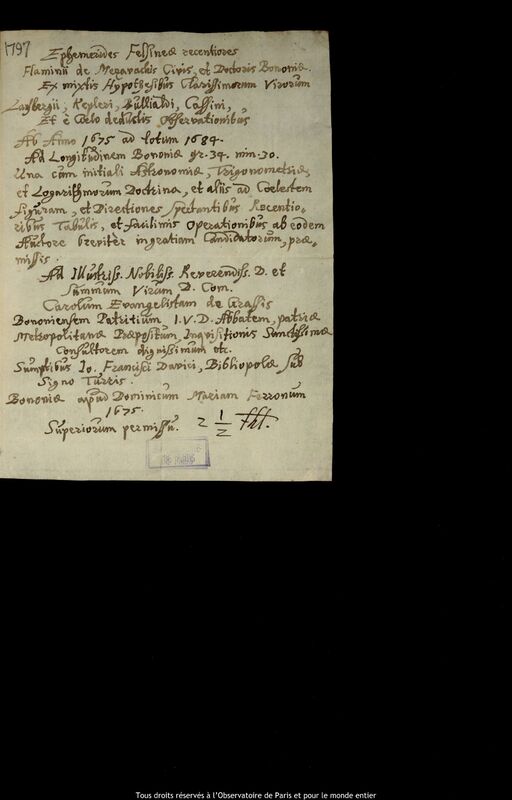 1797
Ephemerides Felsineæ recentiores
Flaminii de Mezavachis Civis, et Doctoris Bononiæ.
Ex mixtis Hypothesibus Clarissimorum Virorum
Lansbergii, Kepleri, Bullialdi, Cassini,
Et è Cælo deductis Observationibus
Ab Anno 1675 ad totum 1684.
Ad Longitudinem Bononiæ gr. 34. min. 30.
Una cum initiali Astronomiæ, Trigonometriæ,
et Logarithmorum Doctrina, et aliis ad Coelestem
figuram, et Directiones spectantibus Recentio-
ribus Tabulis, et facilimis operationibus ab eodem
Auctore breviter in gratiam Candidatorum, præ-
missis.
Ad Illustriss. Nobiliss. Reverendiss. D. et
Summum Virum D. Com.
Carolum Evangelistam de Grassis
Bononiensem Patritium I.V.D. Abbatem, patriæ
Metropolitanæ Præpositum, Inquisitionis Sanctissimæ
Consultorem dignissimum etc.
Sumptibus Io. Francisci Davici, Bibliopolæ sub
Signo Turris.
Bononiæ apud Dominicum Mariam Ferronum
1675.
Superiorum permissu. 2 1/2 Thl.
Tous droits réservés à l'Observatoire de Paris et pour le monde entier